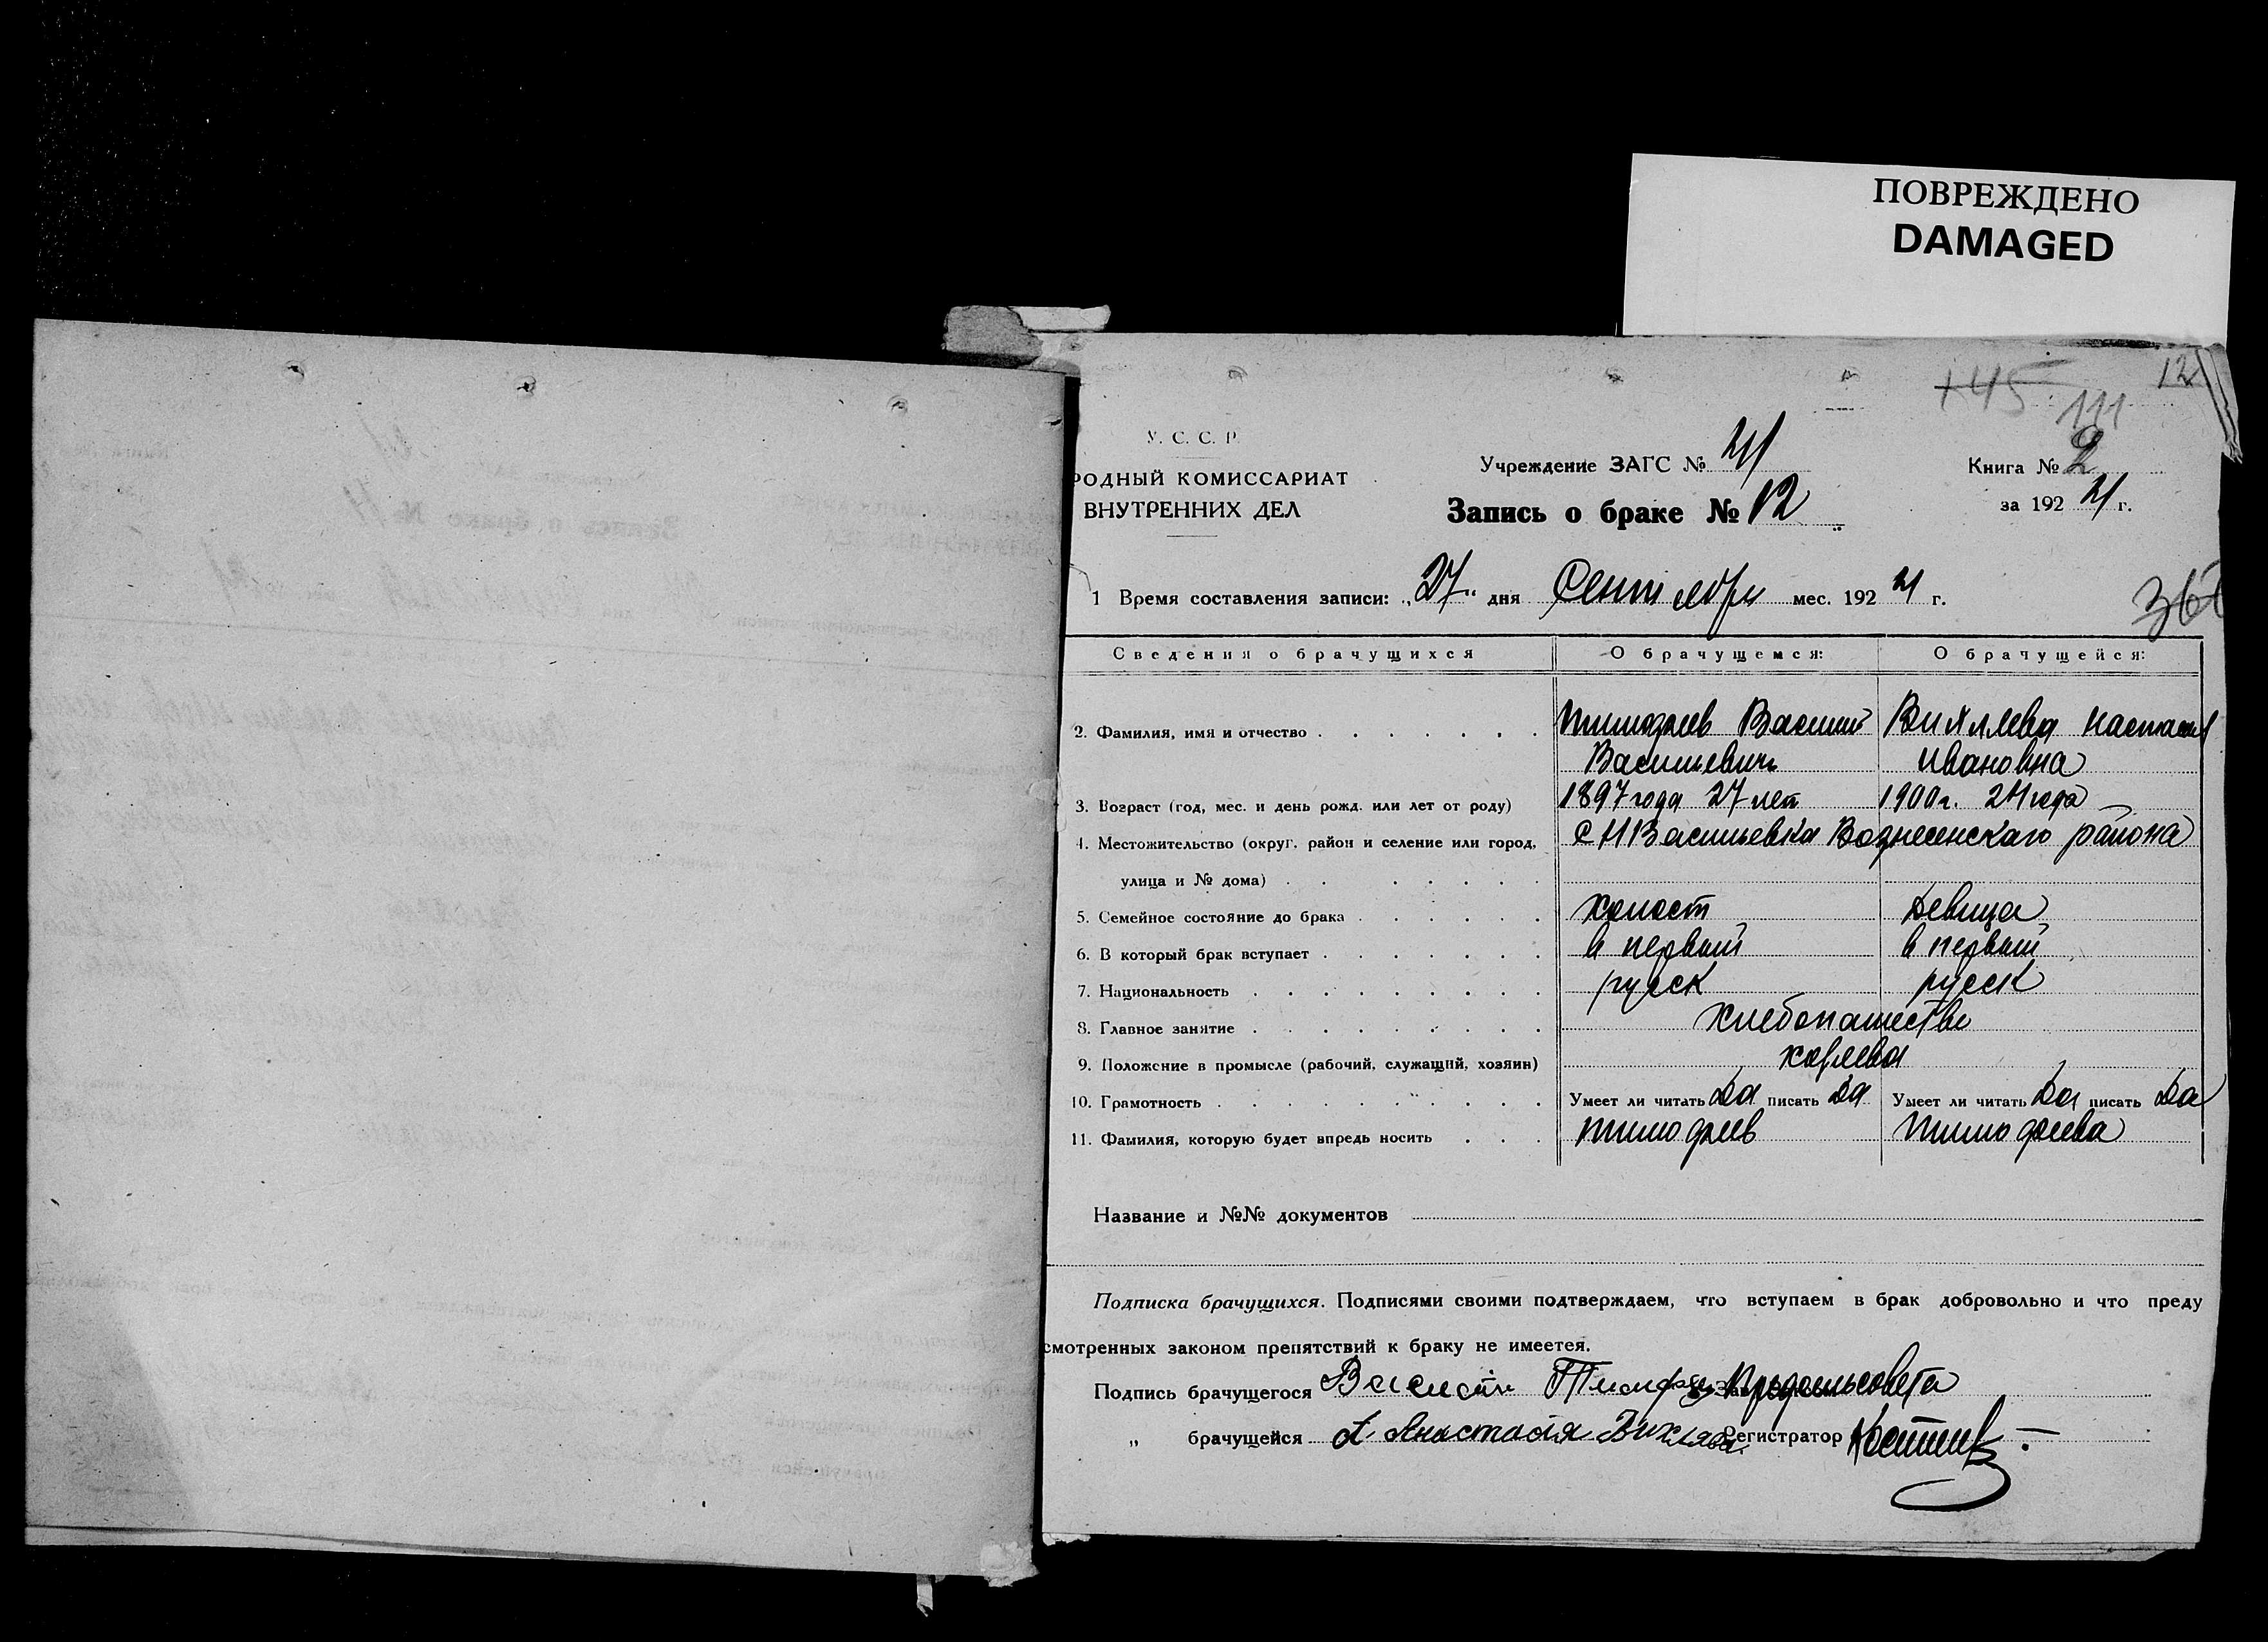 ПОВРЕЖДЕНО
DAMAGED
12
+45
111
У. С. С. Р.
РОДНЫЙ КОМИССАРИАТ
ВНУТРЕННИХ ДЕЛ
Учреждение ЗАГС № 24
Запись о браке № 12
Книга № 2
за 1924 г.
1 Время составления записи: „27“ дня Сентября мес. 1924 г.
Сведения о брачущихся О брачущемся: О брачущейся:
2. Фамилия, имя и отчество Тимофеев Василий Вихлева Настасия
Васильевич Ивановна
3. Возраст (год, мес. и день рожд. или лет от роду) 1897 года 27 лет 1900 г. 24 года
4. Местожительство (округ, район и селение или город, с Н Васильевка Вознесенского района
улица и № дома)
5. Семейное состояние до брака холост девица
6. В который брак вступает в первый в первый
7. Национальность русск русск
8. Главное занятие хлебопашество
9. Положение в промысле (рабочий, служащий, хозяин)
10. Грамотность Умеет ли читать да писать да Умеет ли читать да писать да
11. Фамилия, которую будет впредь носить Тимофеев Тимофеева
Название и №№ документов
Подписка брачущихся. Подписями своими подтверждаем, что вступаем в брак добровольно и что преду
смотренных законом препятствий к браку не имеется.
Подпись брачущегося Василий Тимофеев Предсельсовета
„ брачущейся Анастасия Вихлява Регистратор